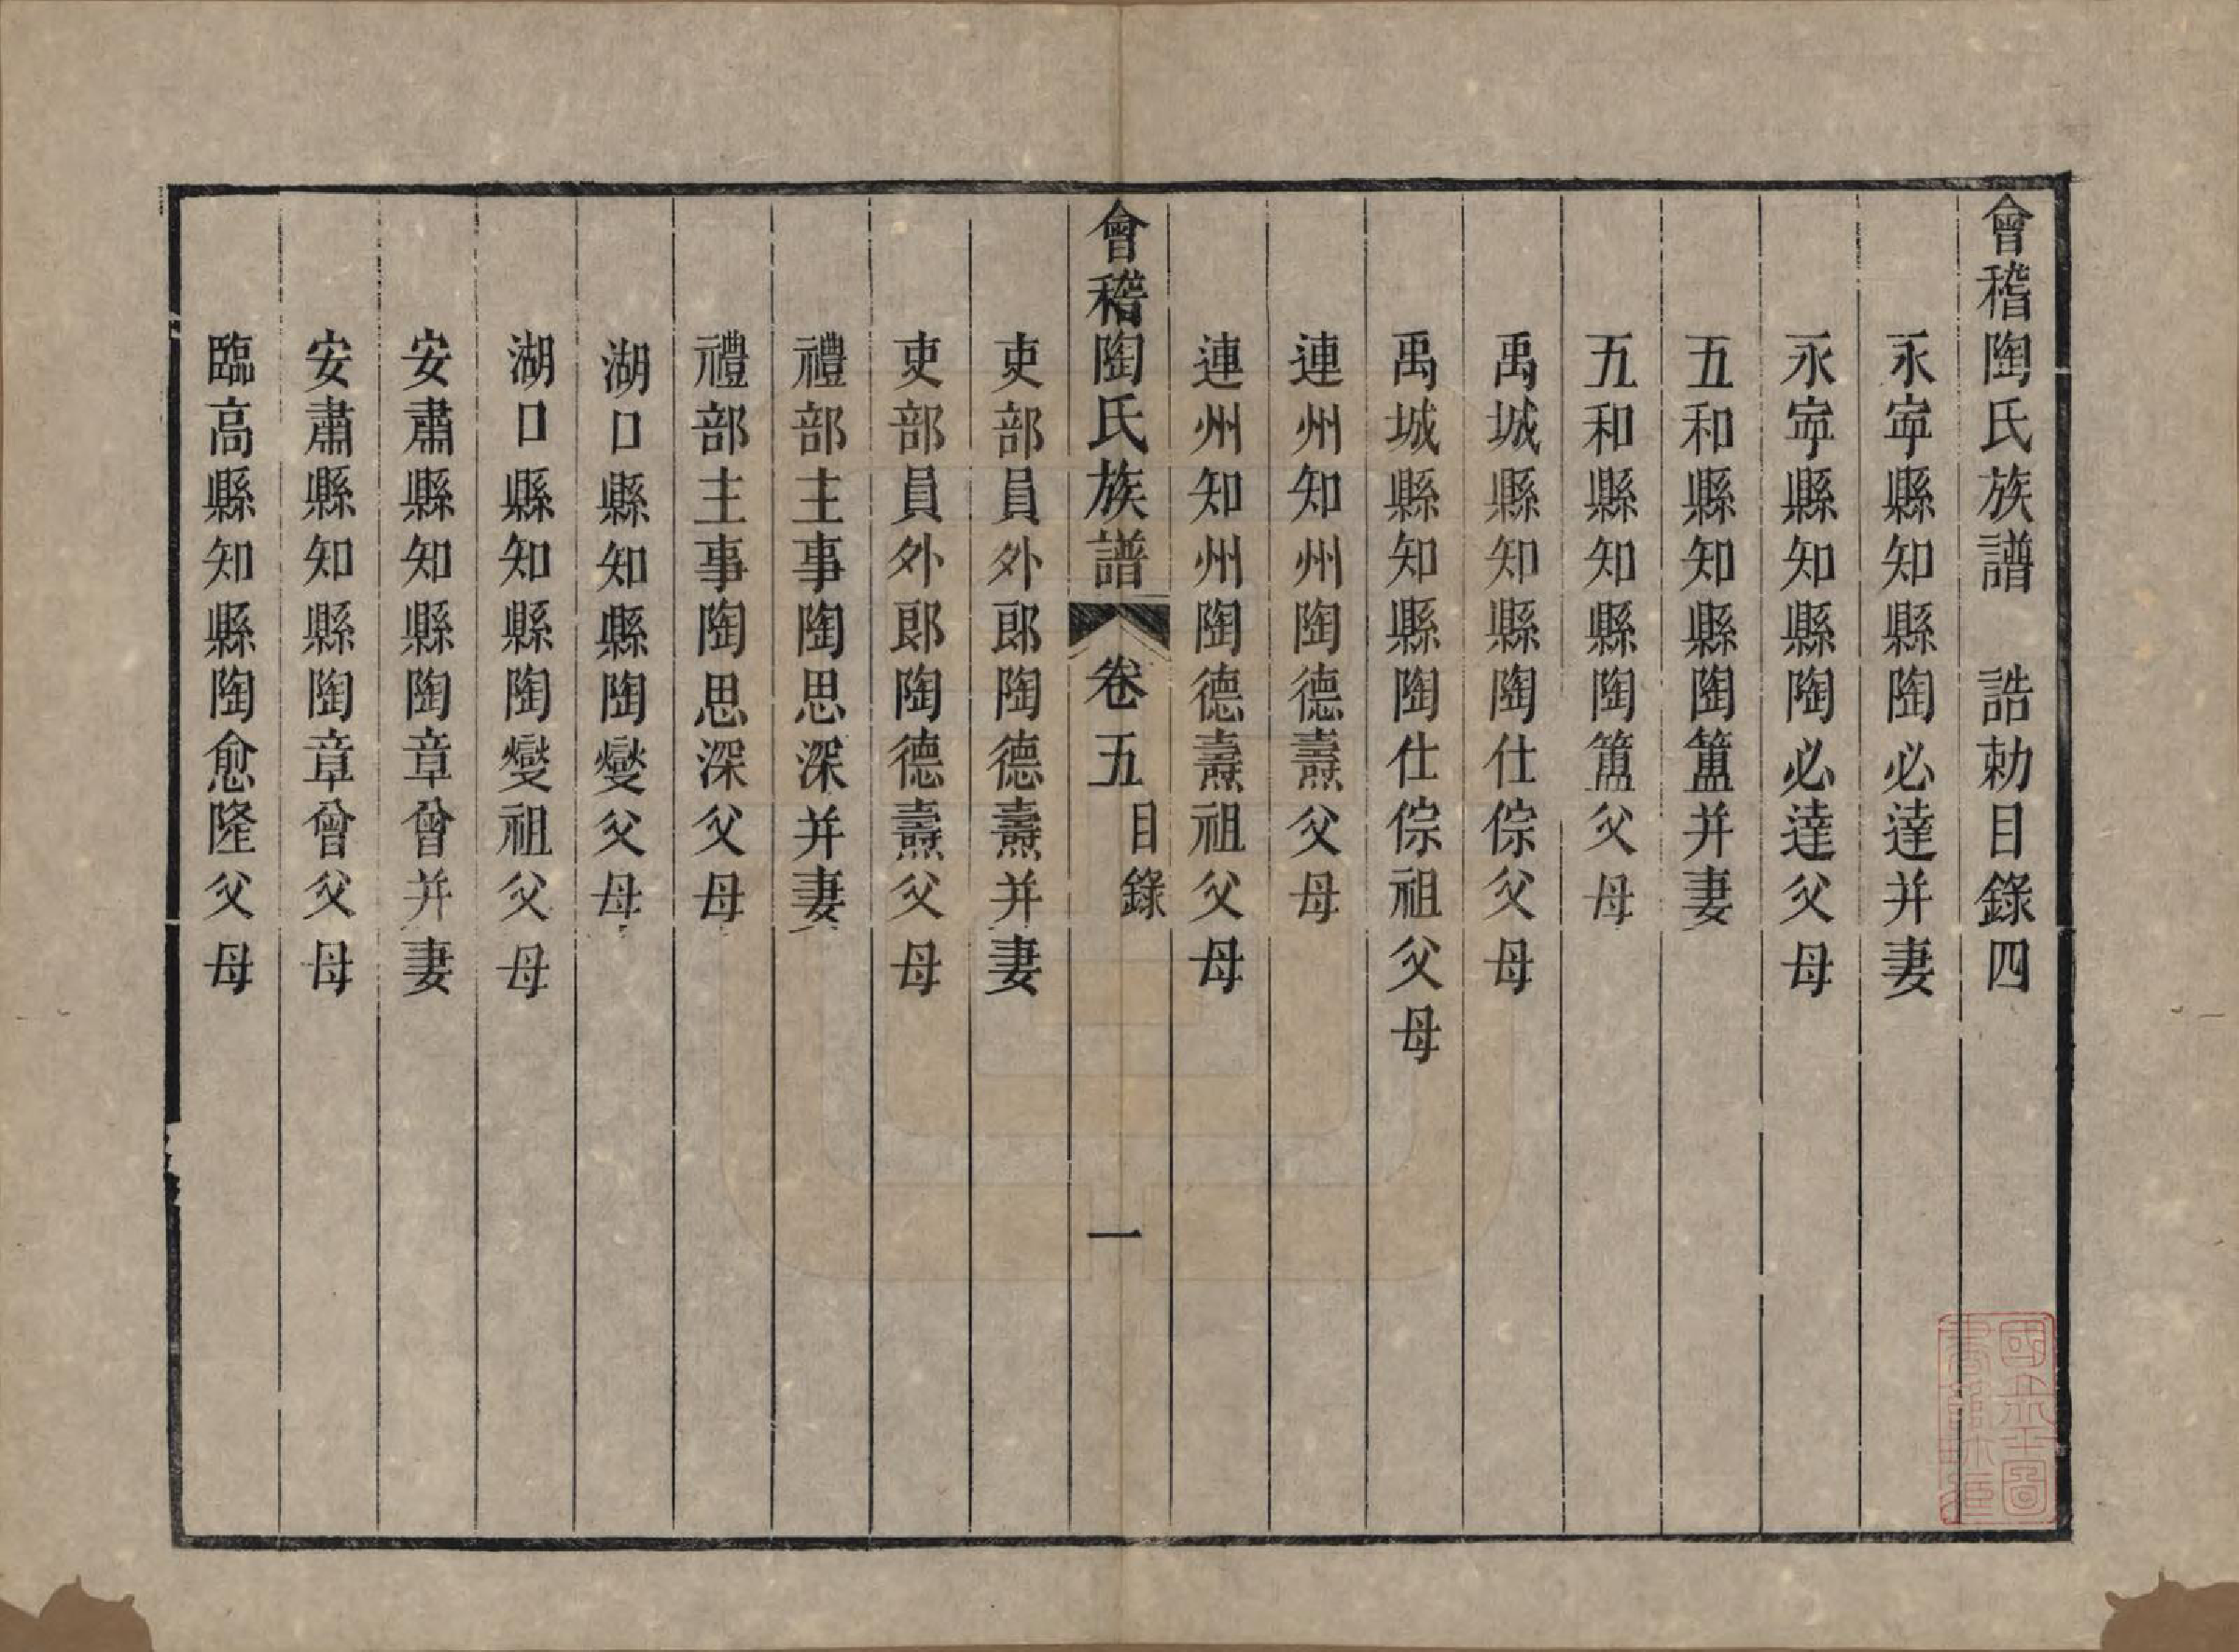 會稽陶氏族譜　誥勅目錄四
永寧縣知縣陶必達并妻
永寧縣知縣陶必達父母
五和縣知縣陶簠并妻
五和縣知縣陶簠父母
禹城縣知縣陶仕倧父母
禹城縣知縣陶仕倧祖父母
連州知州陶德燾父母
連州知州陶德燾祖父母
會稽陶氏族譜　卷五　目錄　一
吏部員外郎陶德燾并妻
吏部員外郎陶德燾父母
禮部主事陶思深并妻
禮部主事陶思深父母
湖口縣知縣陶燮父母
湖口縣知縣陶燮祖父母
安肅縣知縣陶章曾并妻
安肅縣知縣陶章曾父母
臨高縣知縣陶愈隆父母